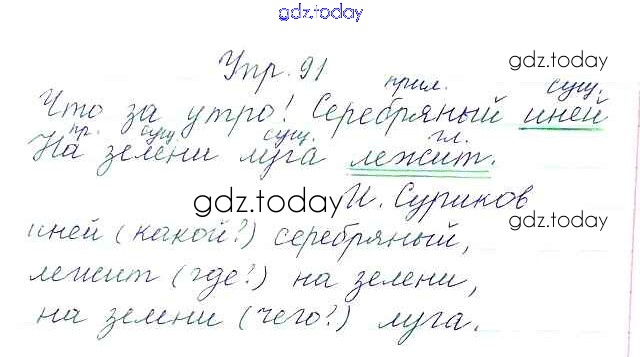 gdz.today
Упр. 91
gdz.today
прил. сущ.
Что за утро! Серебряный иней
пр. сущ. сущ. гл.
На зелени луга лежит.
gdz.today И. Суриков
gdz.today
иней (какой?) серебряный,
лежит (где?) на зелени,
на зелени (чего?) луга.